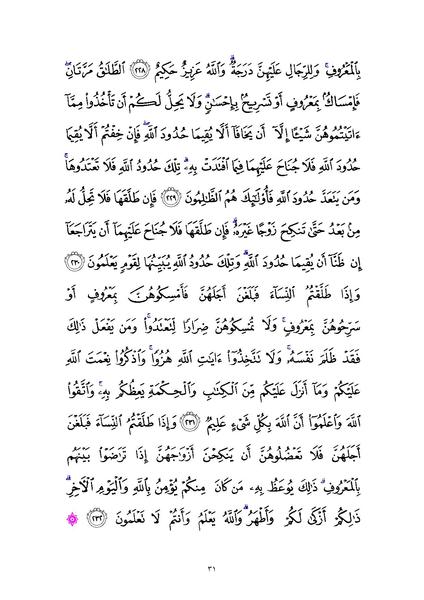 بِٱلْمَعْرُوفِۚ وَلِلرِّجَالِ عَلَيْهِنَّ دَرَجَةٌۗ وَٱللَّهُ عَزِيزٌ حَكِيمٌ ٢٢٨ ٱلطَّلَٰقُ مَرَّتَانِۖ
فَإِمْسَاكُۢ بِمَعْرُوفٍ أَوْ تَسْرِيحُۢ بِإِحْسَٰنٍۗ وَلَا يَحِلُّ لَكُمْ أَن تَأْخُذُوا۟ مِمَّآ
ءَاتَيْتُمُوهُنَّ شَيْـًٔا إِلَّآ أَن يَخَافَآ أَلَّا يُقِيمَا حُدُودَ ٱللَّهِۖ فَإِنْ خِفْتُمْ أَلَّا يُقِيمَا
حُدُودَ ٱللَّهِ فَلَا جُنَاحَ عَلَيْهِمَا فِيمَا ٱفْتَدَتْ بِهِۦۗ تِلْكَ حُدُودُ ٱللَّهِ فَلَا تَعْتَدُوهَاۚ
وَمَن يَتَعَدَّ حُدُودَ ٱللَّهِ فَأُو۟لَٰٓئِكَ هُمُ ٱلظَّٰلِمُونَ ٢٢٩ فَإِن طَلَّقَهَا فَلَا تَحِلُّ لَهُۥ
مِنۢ بَعْدُ حَتَّىٰ تَنكِحَ زَوْجًا غَيْرَهُۥۗ فَإِن طَلَّقَهَا فَلَا جُنَاحَ عَلَيْهِمَآ أَن يَتَرَاجَعَآ
إِن ظَنَّآ أَن يُقِيمَا حُدُودَ ٱللَّهِۗ وَتِلْكَ حُدُودُ ٱللَّهِ يُبَيِّنُهَا لِقَوْمٍ يَعْلَمُونَ ٢٣٠
وَإِذَا طَلَّقْتُمُ ٱلنِّسَآءَ فَبَلَغْنَ أَجَلَهُنَّ فَأَمْسِكُوهُنَّ بِمَعْرُوفٍ أَوْ
سَرِّحُوهُنَّ بِمَعْرُوفٍۚ وَلَا تُمْسِكُوهُنَّ ضِرَارًا لِّتَعْتَدُوا۟ۚ وَمَن يَفْعَلْ ذَٰلِكَ
فَقَدْ ظَلَمَ نَفْسَهُۥۚ وَلَا تَتَّخِذُوٓا۟ ءَايَٰتِ ٱللَّهِ هُزُوًاۚ وَٱذْكُرُوا۟ نِعْمَتَ ٱللَّهِ
عَلَيْكُمْ وَمَآ أَنزَلَ عَلَيْكُم مِّنَ ٱلْكِتَٰبِ وَٱلْحِكْمَةِ يَعِظُكُم بِهِۦۚ وَٱتَّقُوا۟
ٱللَّهَ وَٱعْلَمُوٓا۟ أَنَّ ٱللَّهَ بِكُلِّ شَىْءٍ عَلِيمٌ ٢٣١ وَإِذَا طَلَّقْتُمُ ٱلنِّسَآءَ فَبَلَغْنَ
أَجَلَهُنَّ فَلَا تَعْضُلُوهُنَّ أَن يَنكِحْنَ أَزْوَٰجَهُنَّ إِذَا تَرَٰضَوْا۟ بَيْنَهُم
بِٱلْمَعْرُوفِۗ ذَٰلِكَ يُوعَظُ بِهِۦ مَن كَانَ مِنكُمْ يُؤْمِنُ بِٱللَّهِ وَٱلْيَوْمِ ٱلْءَاخِرِۗ
ذَٰلِكُمْ أَزْكَىٰ لَكُمْ وَأَطْهَرُۗ وَٱللَّهُ يَعْلَمُ وَأَنتُمْ لَا تَعْلَمُونَ ٢٣٢ ۞
٣١